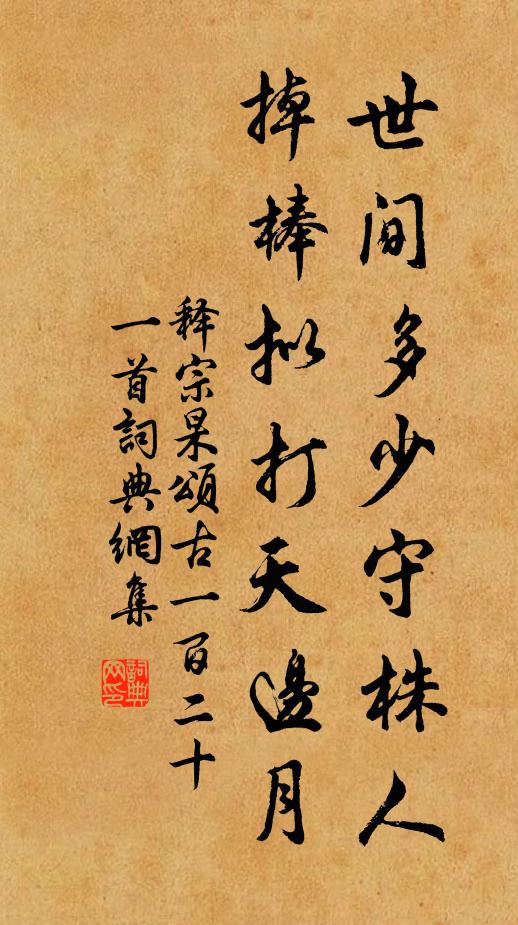 世间多少守株人
掉棒拟打天邊月
释宗杲頌古一百二十
一首詞典網集
詞典
网印